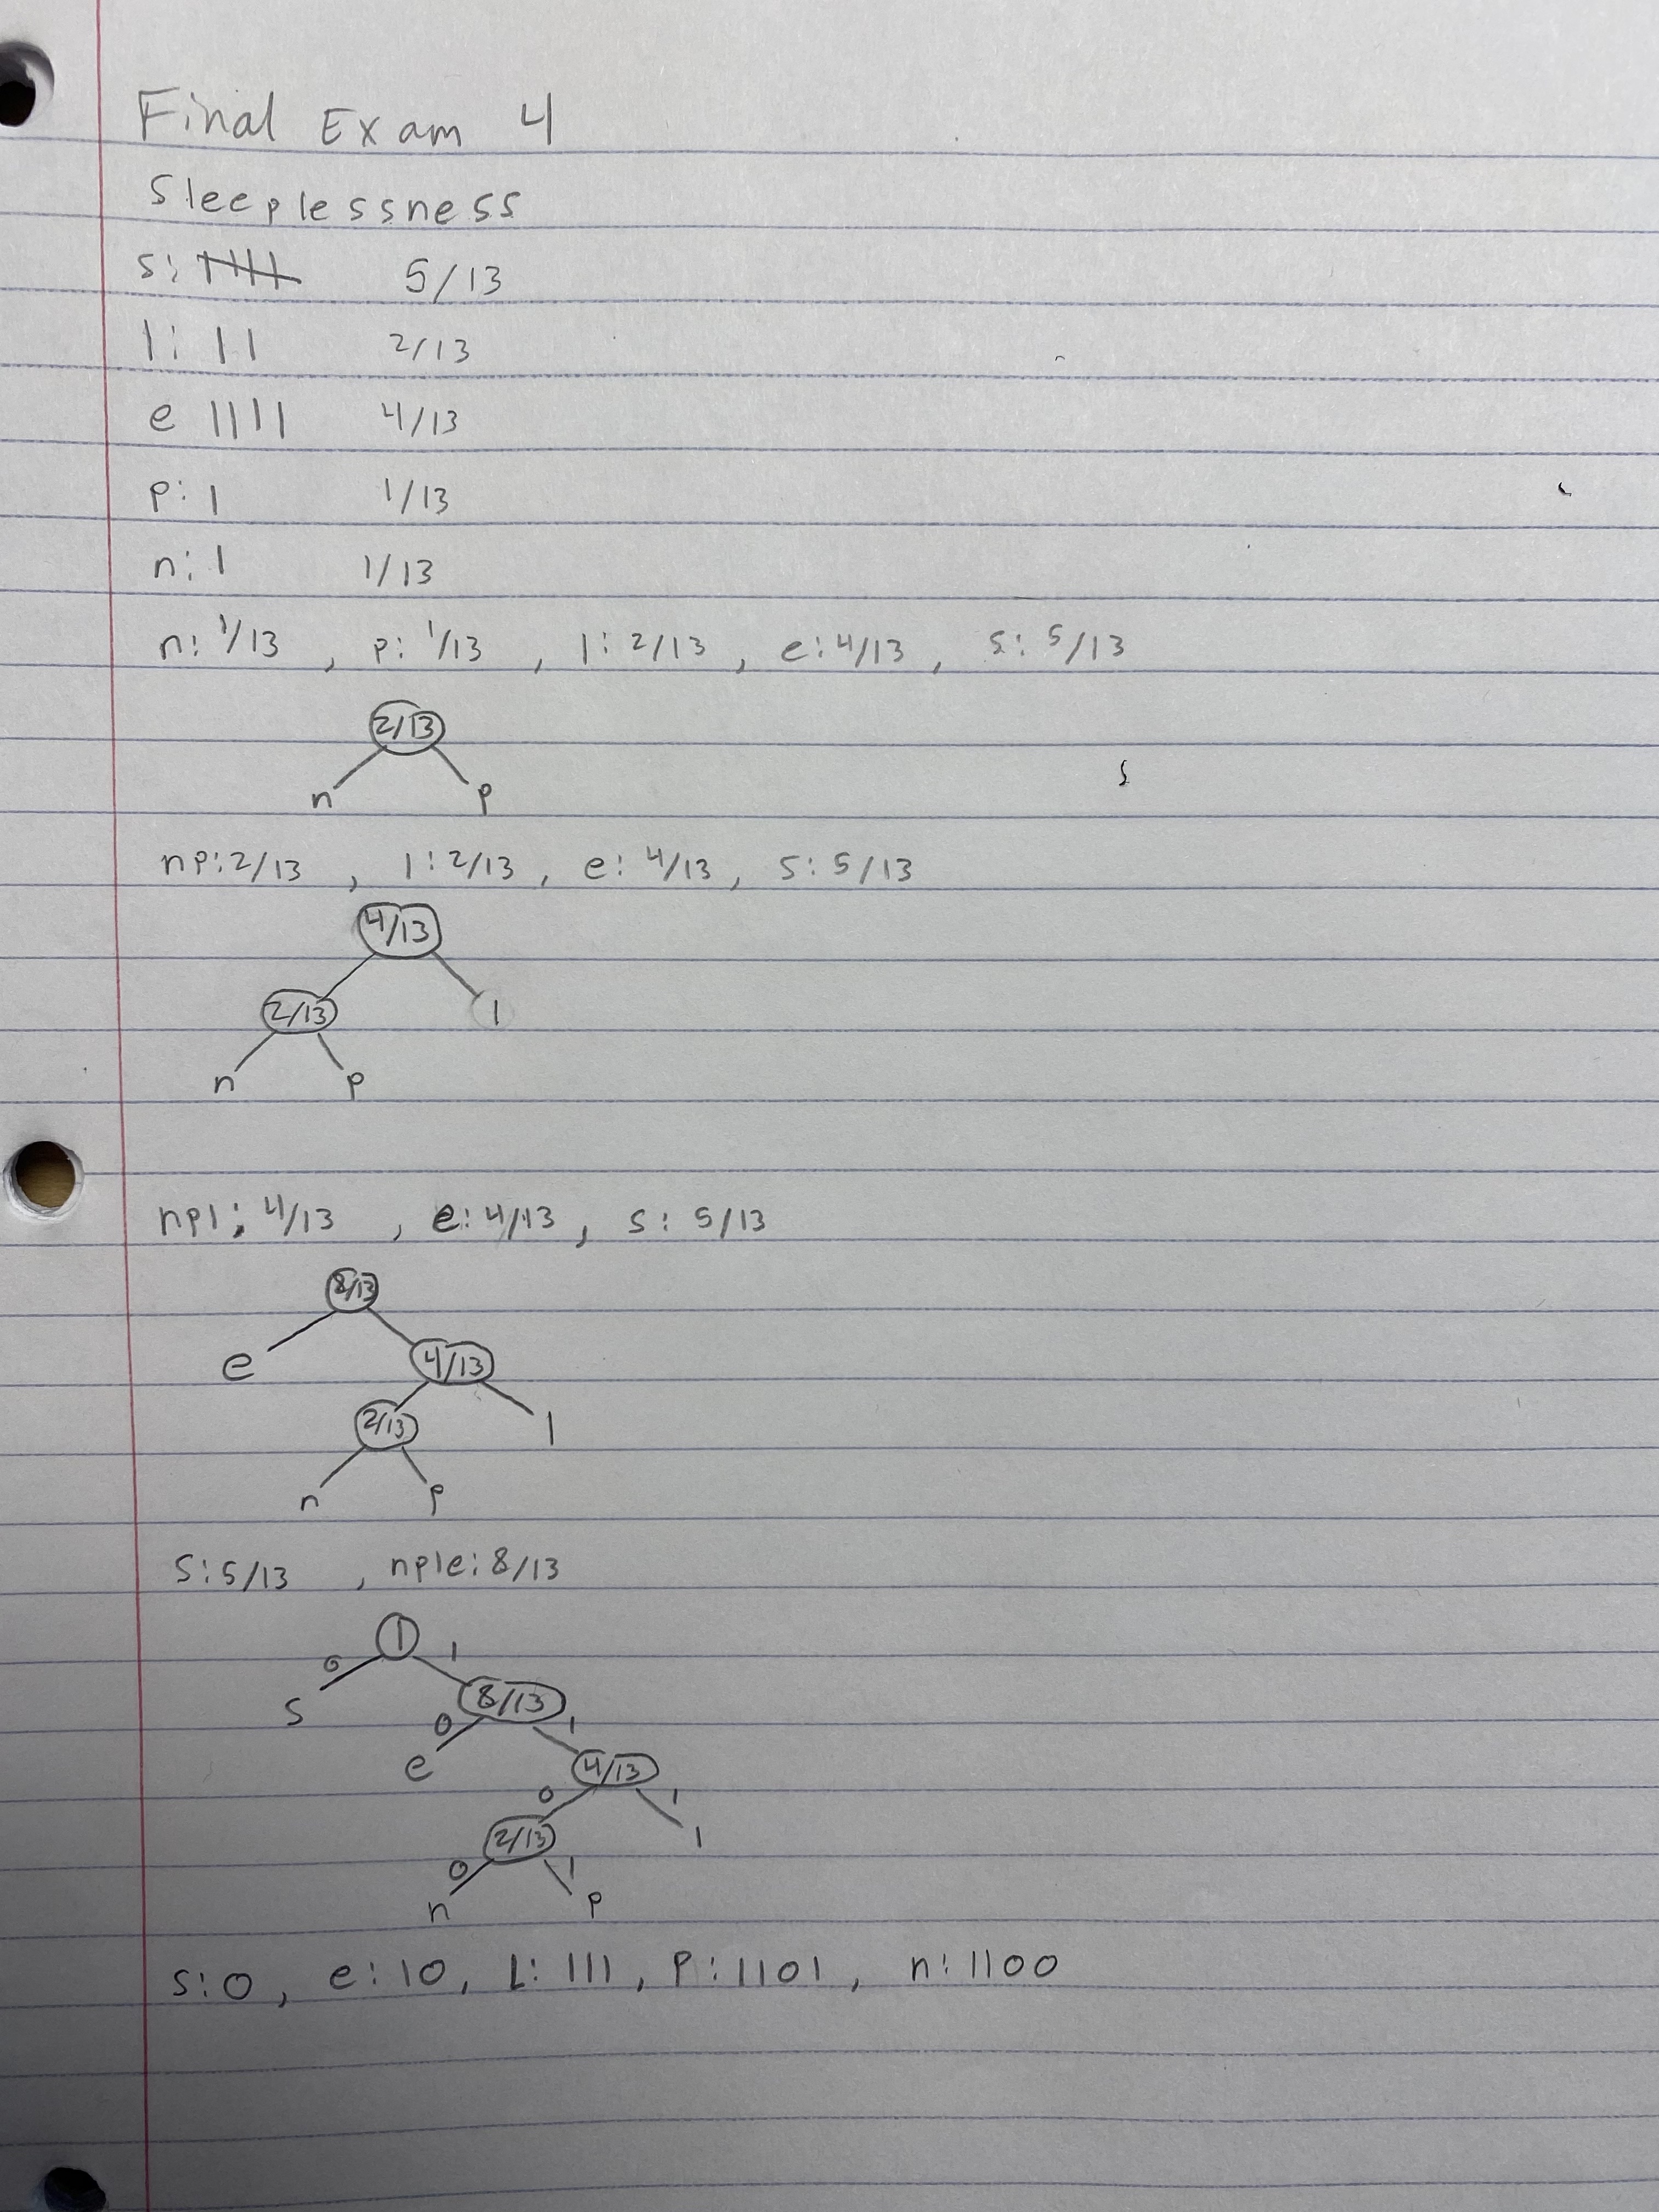 Final Exam 4
Sleeplessness
s: 5/13
l: || 2/13
e |||| 4/13
p: | 1/13
n: | 1/13
n: 1/13 , p: 1/13 , l: 2/13 , e: 4/13 , s: 5/13
2/13
n p
np: 2/13 , l: 2/13 , e: 4/13 , s: 5/13
4/13
2/13 l
n p
npl: 4/13 , e: 4/13 , s: 5/13
8/13
e 4/13
2/13 l
n p
s: 5/13 , nple: 8/13
1
0 1
s 8/13
0 1
e 4/13
0 1
2/13 l
0 1
n p
s: 0 , e: 10 , L: 111 , P: 1101 , n: 1100